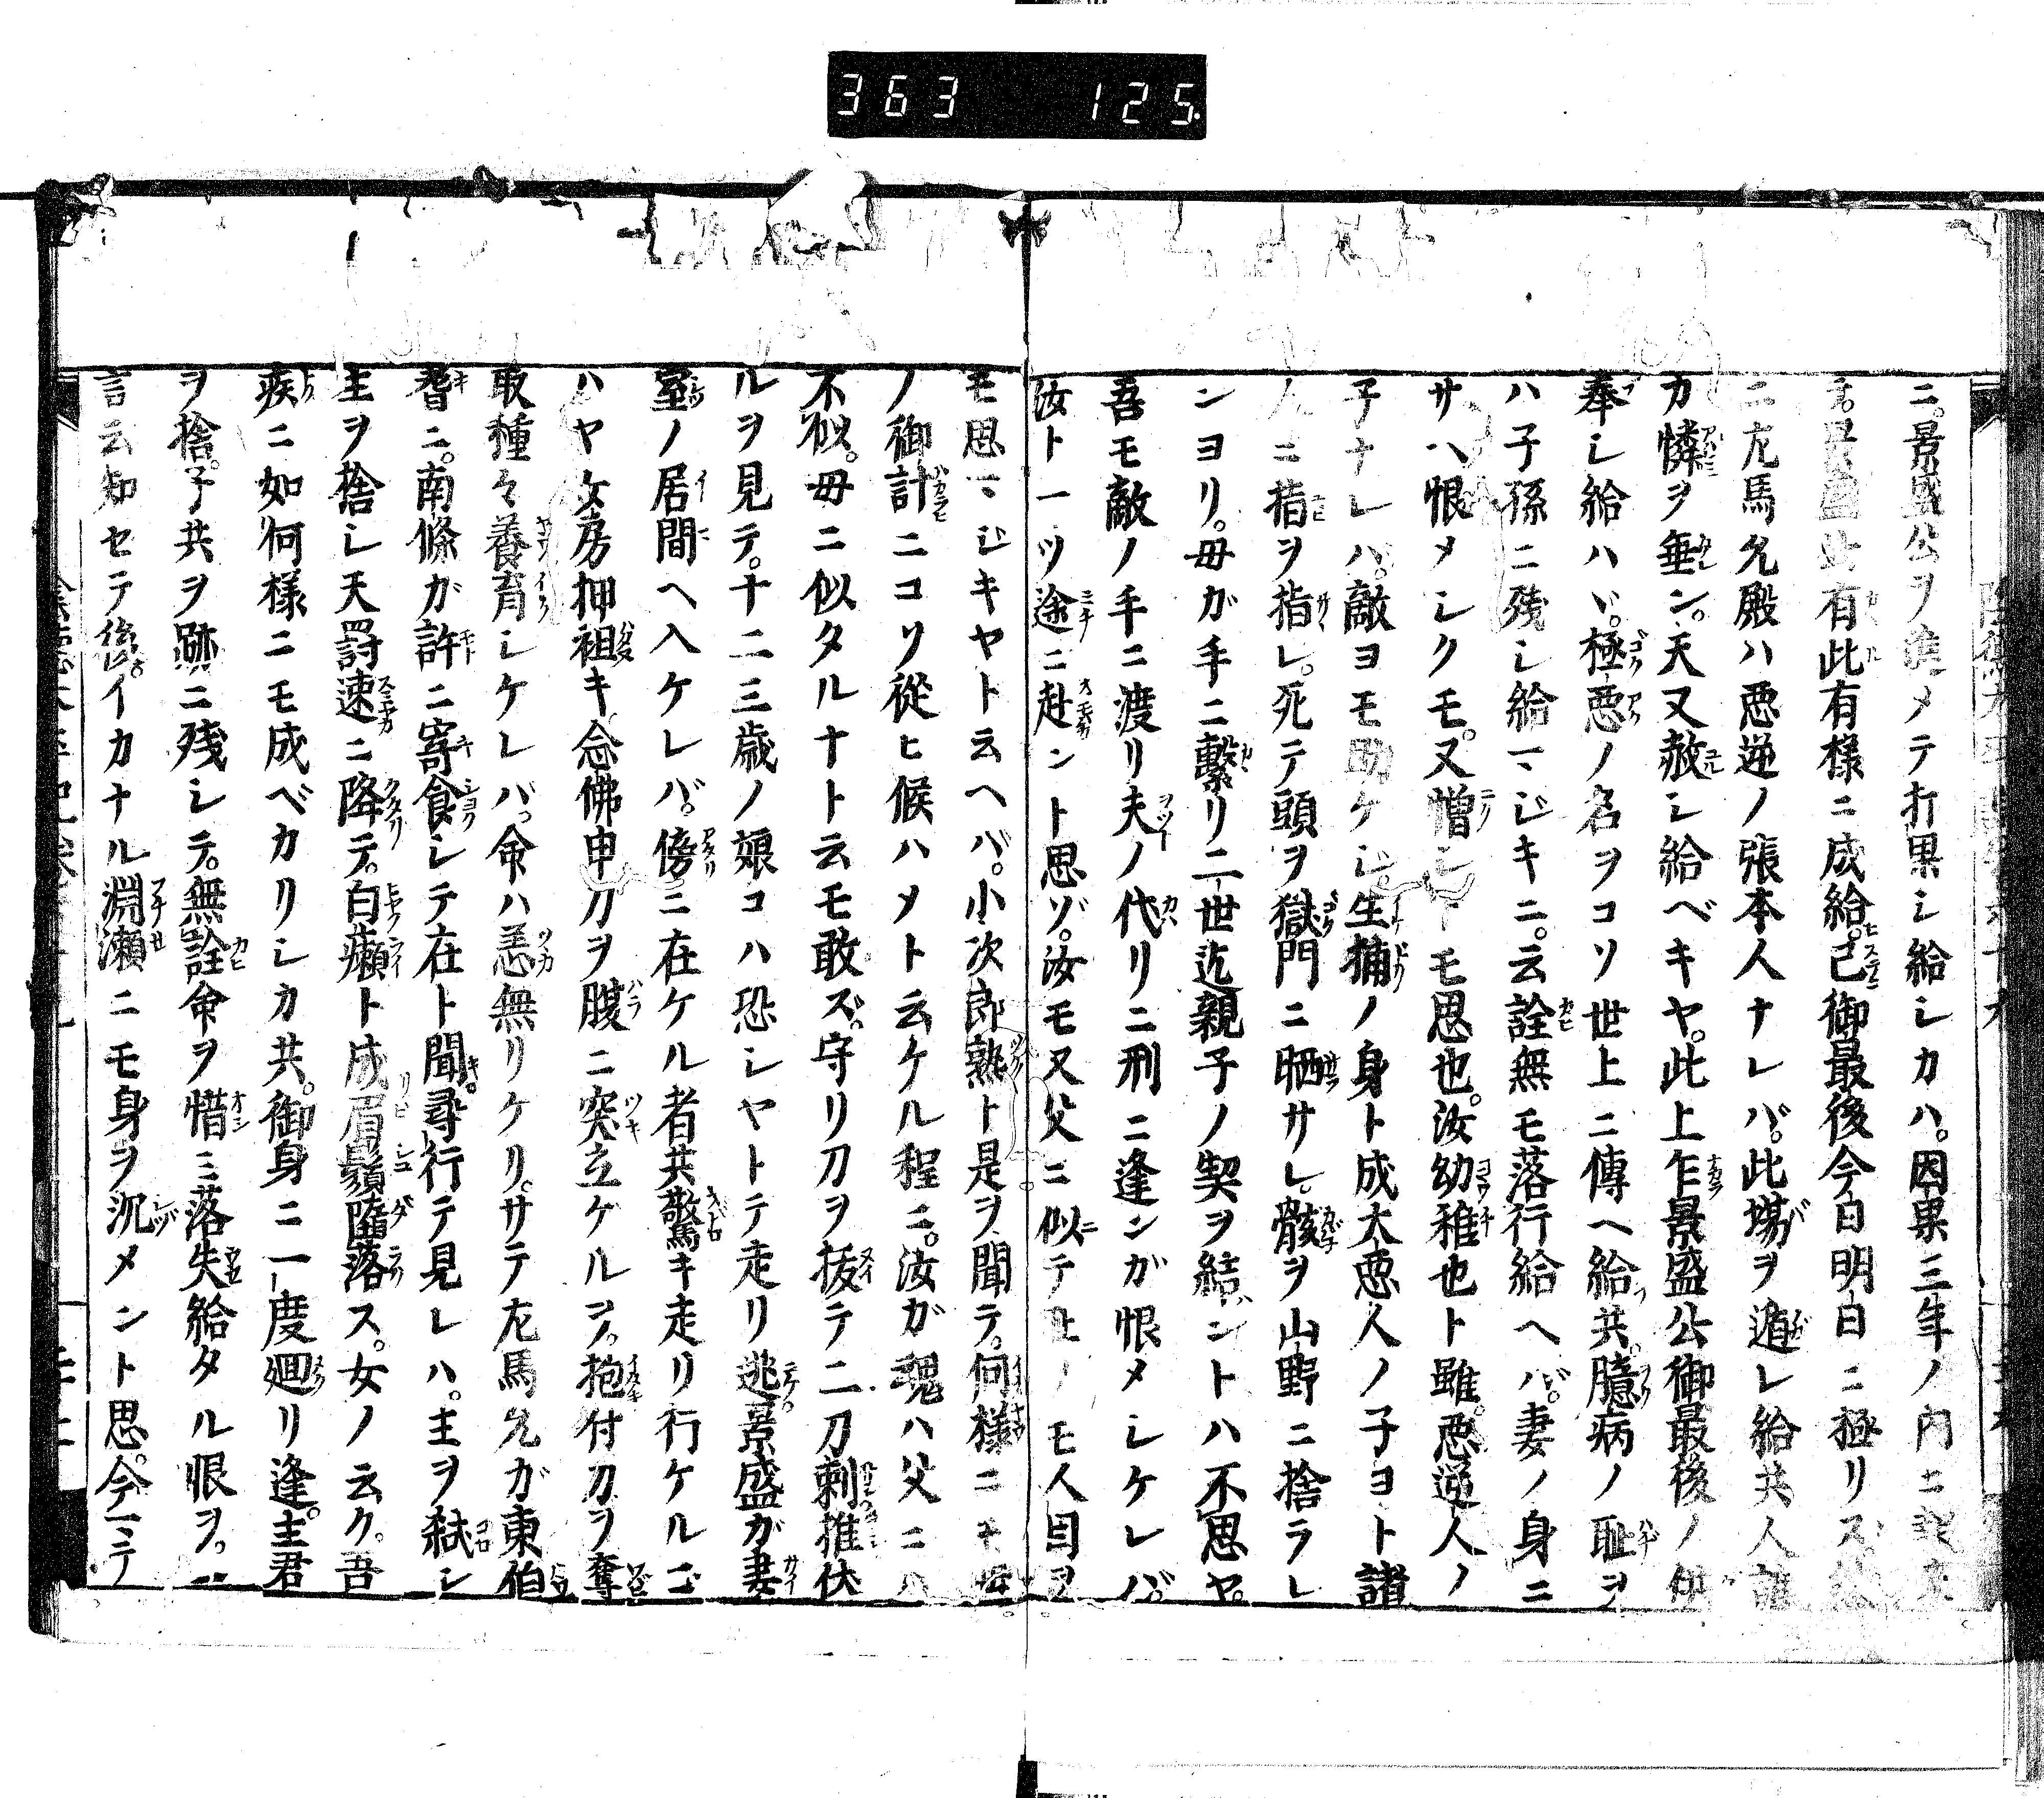 363 125
ニ。景盛公ヲ進メテ打果シ給シカハ。因果三年ノ内ニ
景盛此有此有様ニ成給。已御最後今日明日ニ極リヌ
ニ左馬允殿ハ悪逆ノ張本人ナレバ。此塲ヲ遁レ給共人誰
カ憐ヲ垂ン。天又赦シ給ベキヤ。此上乍景盛公御最後ノ
奉シ給ハヾ。極悪ノ名ヲコソ世上ニ傳ヘ給共。臆病ノ耻ヲ
ハ子孫ニ殘シ給マジキニ。云詮無モ落行給ヘバ。妻ノ身ニ
サヘ恨メシクモ。又憎シトモ思也。汝幼稚也ト雖。悪逆人ノ
子ナレハ。敵ヨモ助ケジ生捕ノ身ト成大悪人ノ子ヨト諸
人ニ指ヲ指レ。死テ頭ヲ獄門ニ晒サレ。骸ヲ山野ニ捨ラレ
ンヨリ。毋ガ手ニ繫リ二世迄親子ノ契ヲ結ントハ不思ヤ。
吾モ敵ノ手ニ渡リ夫ノ代リニ刑ニ逢ンガ恨メシケレバ。
汝ト一ツ途ニ赴ント思ゾ。汝モ又父ニ似テ モ人目ヲ
モ思マジキヤト云ヘバ。小次郎熟ト是ヲ聞テ。何様ニモ毋
ノ御計ニコソ從ヒ候ハメト云ケル程ニ。汝ガ魂ハ父ニハ
不似。毋ニ似タルナト云モ敢ズ。守リ刀ヲ抜テ二刀刺推伏
ルヲ見テ。十二三歳ノ娘コハ恐シヤトテ走リ逃。景盛ガ妻
室ノ居間ヘ入ケレバ。傍ニ在ケル者共驚キ走リ行ケルニ
ハヤ女房押袒キ念佛申刀ヲ腹ニ突立ケルヲ。抱付刀ヲ奪
取種々養育シケレバ。命ハ恙無リケリ。サテ左馬允ガ東伯
耆ニ。南條ガ許ニ寄食シテ在ト聞。尋行テ見レハ。主ヲ弑シ
主ヲ捨シ天罸速ニ降テ。白癩ト成眉鬚墮落ス。女ノ云ク。吾
疾ニ如何様ニモ成ベカリシカ共。御身ニ一度廻リ逢。主君
ヲ捨。子共ヲ跡ニ殘シテ。無詮命ヲ惜ミ落失給タル恨ヲ。一
言云知セテ後。イカナル淵瀬ニモ身ヲ沉メント思。今ニテ